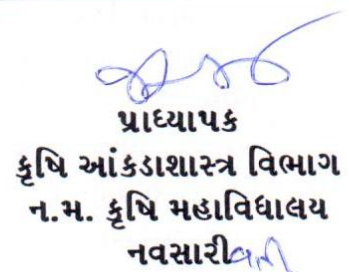 પ્રાધ્યાપક
કૃષિ આંકડાશાસ્ત્ર વિભાગ
ન.મ. કૃષિ મહાવિદ્યાલય
નવસારી